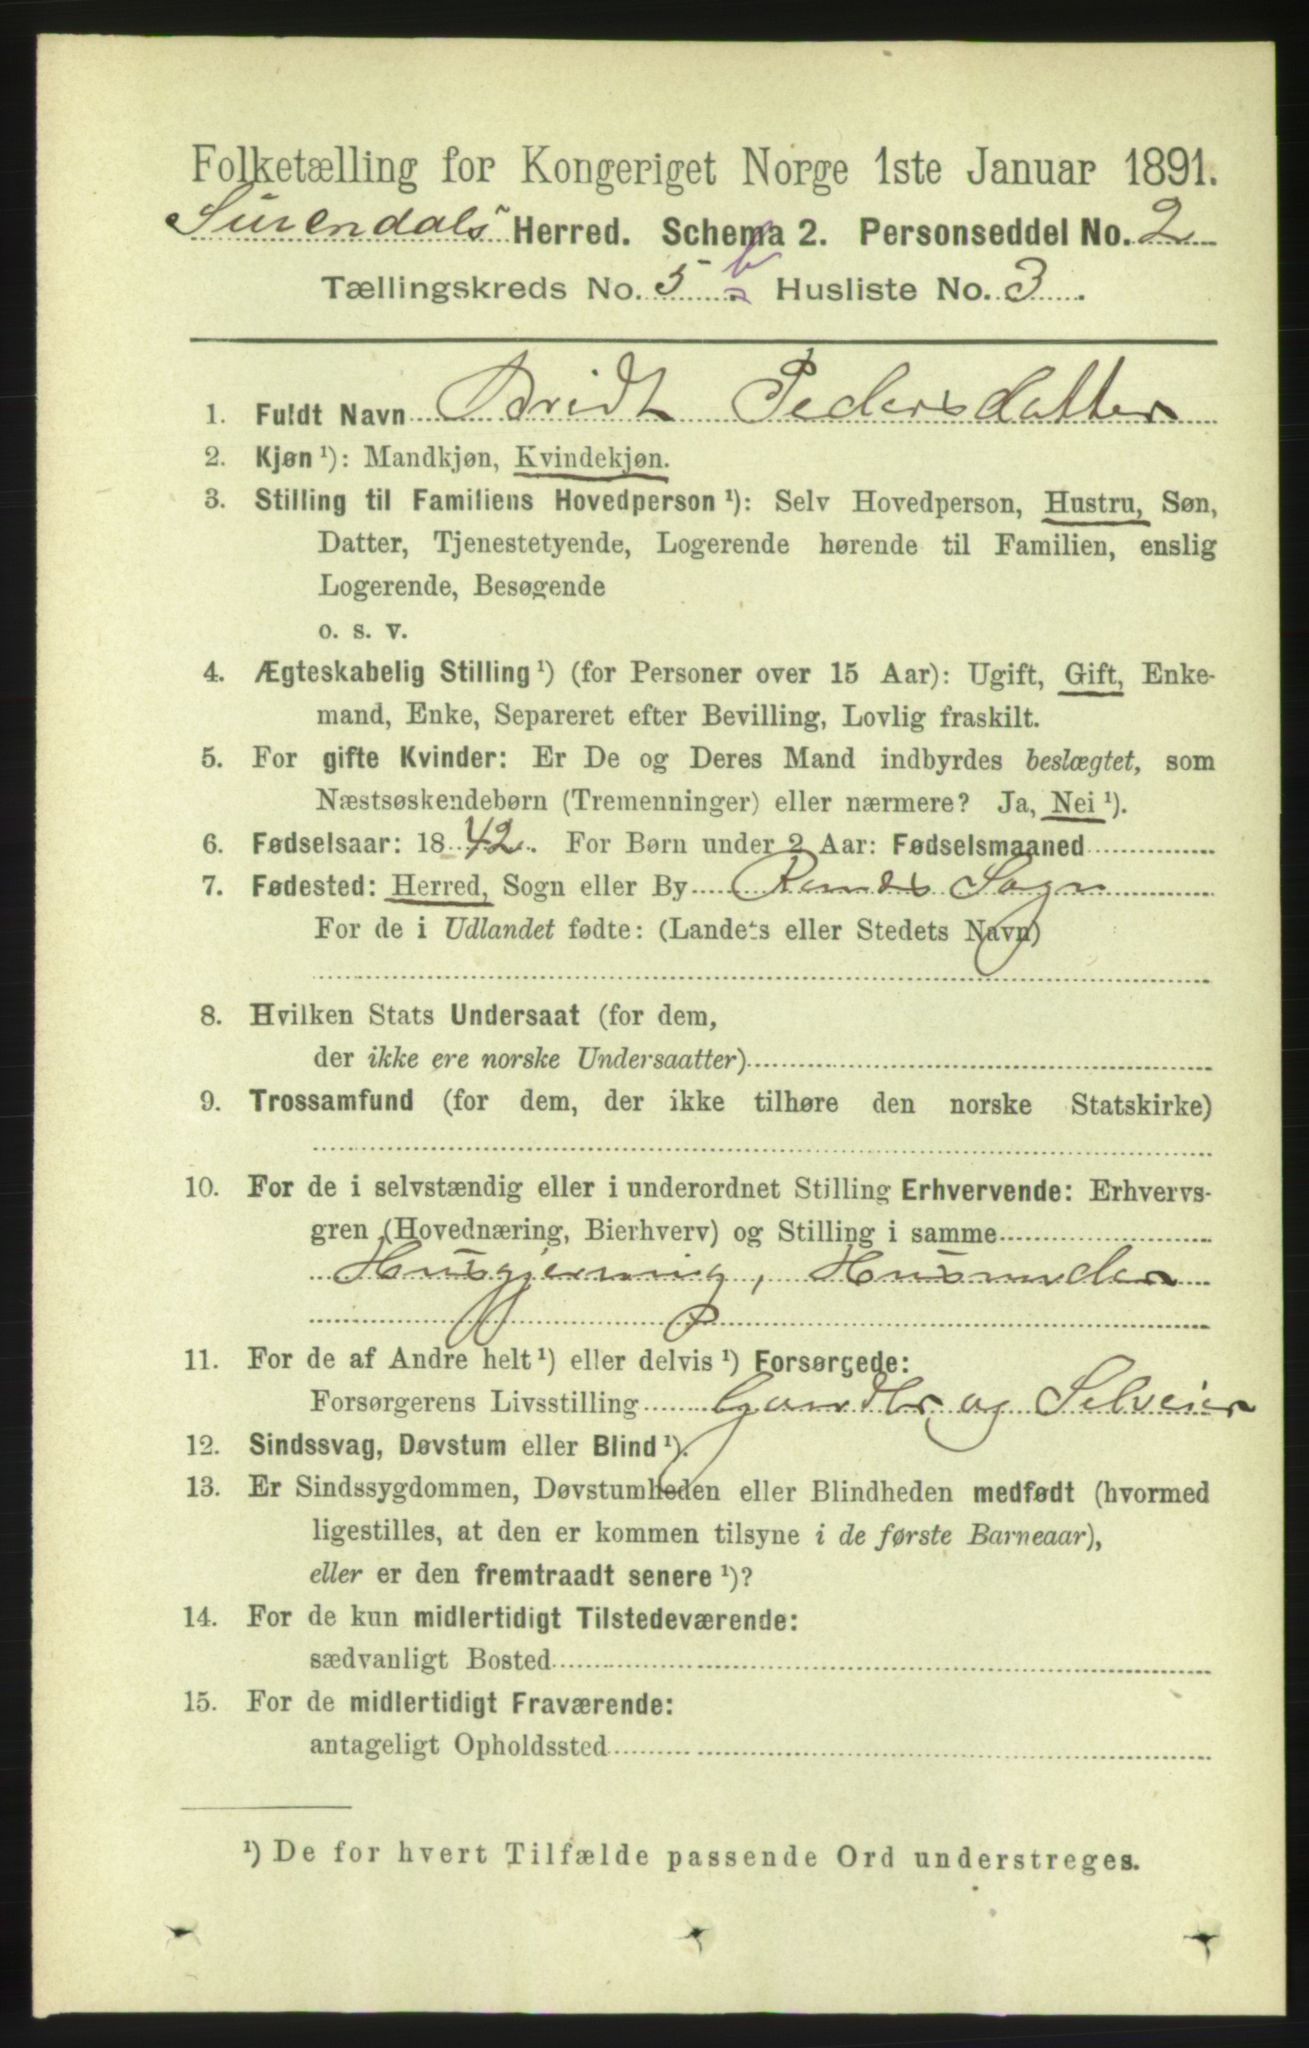 Folketælling for Kongeriget Norge 1ste Januar 1891.
Surendals Herred. Schema 2. Personseddel No. 2
Tællingskreds No. 5 b Husliste No. 3
1. Fuldt Navn Bridt Pedersdatter
2. Kjøn ¹): Mandkjøn, Kvindekjøn.
3. Stilling til Familiens Hovedperson ¹): Selv Hovedperson, Hustru, Søn,
Datter, Tjenestetyende, Logerende hørende til Familien, enslig
Logerende, Besøgende
o. s. v.
4. Ægteskabelig Stilling ¹) (for Personer over 15 Aar): Ugift, Gift, Enke-
mand, Enke, Separeret efter Bevilling, Lovlig fraskilt.
5. For gifte Kvinder: Er De og Deres Mand indbyrdes beslægtet, som
Næstsøskendebørn (Tremenninger) eller nærmere? Ja, Nei ¹).
6. Fødselsaar: 1842. For Børn under 2 Aar: Fødselsmaaned
7. Fødested: Herred, Sogn eller By Rindes Sogn
For de i Udlandet fødte: (Landets eller Stedets Navn)
8. Hvilken Stats Undersaat (for dem,
der ikke ere norske Undersaatter)
9. Trossamfund (for dem, der ikke tilhøre den norske Statskirke)
10. For de i selvstændig eller i underordnet Stilling Erhvervende: Erhvervs-
gren (Hovednæring, Bierhverv) og Stilling i samme
Husgjerning, Husmoder
11. For de af Andre helt ¹) eller delvis ¹) Forsørgede:
Forsørgerens Livsstilling Gaardbr og Selveier
12. Sindssvag, Døvstum eller Blind ¹).
13. Er Sindssygdommen, Døvstumheden eller Blindheden medfødt (hvormed
ligestilles, at den er kommen tilsyne i de første Barneaar),
eller er den fremtraadt senere ¹)?
14. For de kun midlertidigt Tilstedeværende:
sædvanligt Bosted
15. For de midlertidigt Fraværende:
antageligt Opholdssted
¹) De for hvert Tilfælde passende Ord understreges.